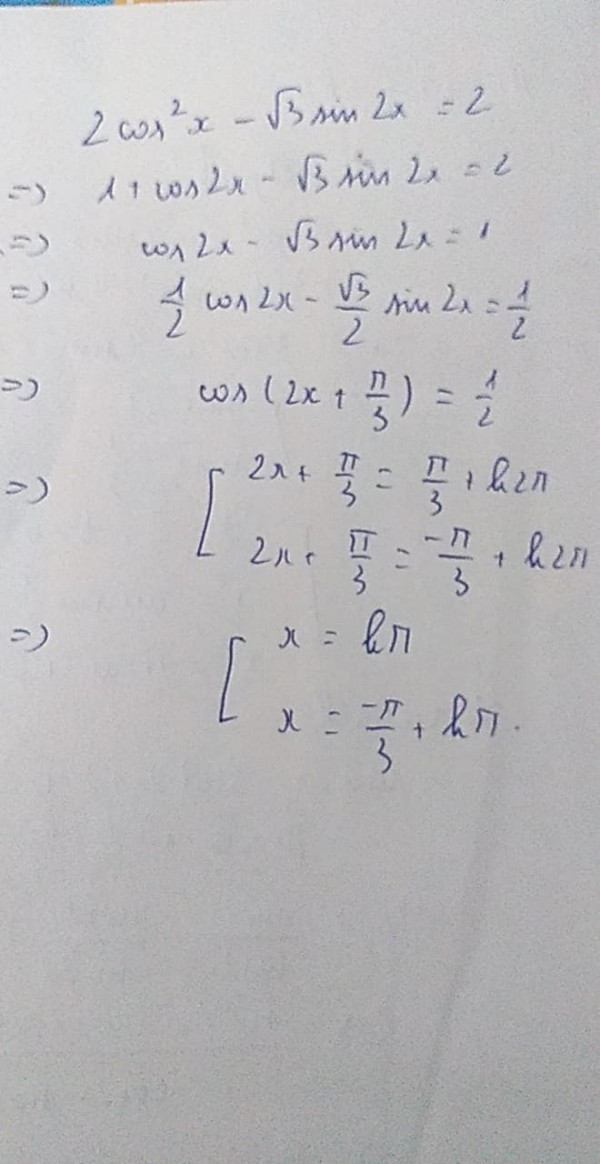 2cos²x - √3 sin 2x = 2
=) 1 + cos2x - √3 sin 2x = 2
=) cos 2x - √3 sin 2x = 1
=) 1/2 cos 2x - √3/2 sin 2x = 1/2
=) cos (2x + π/3) = 1/2
=) [ 2x + π/3 = π/3 + k2π
2x + π/3 = -π/3 + k2π
=) [ x = kπ
x = -π/3 + kπ.